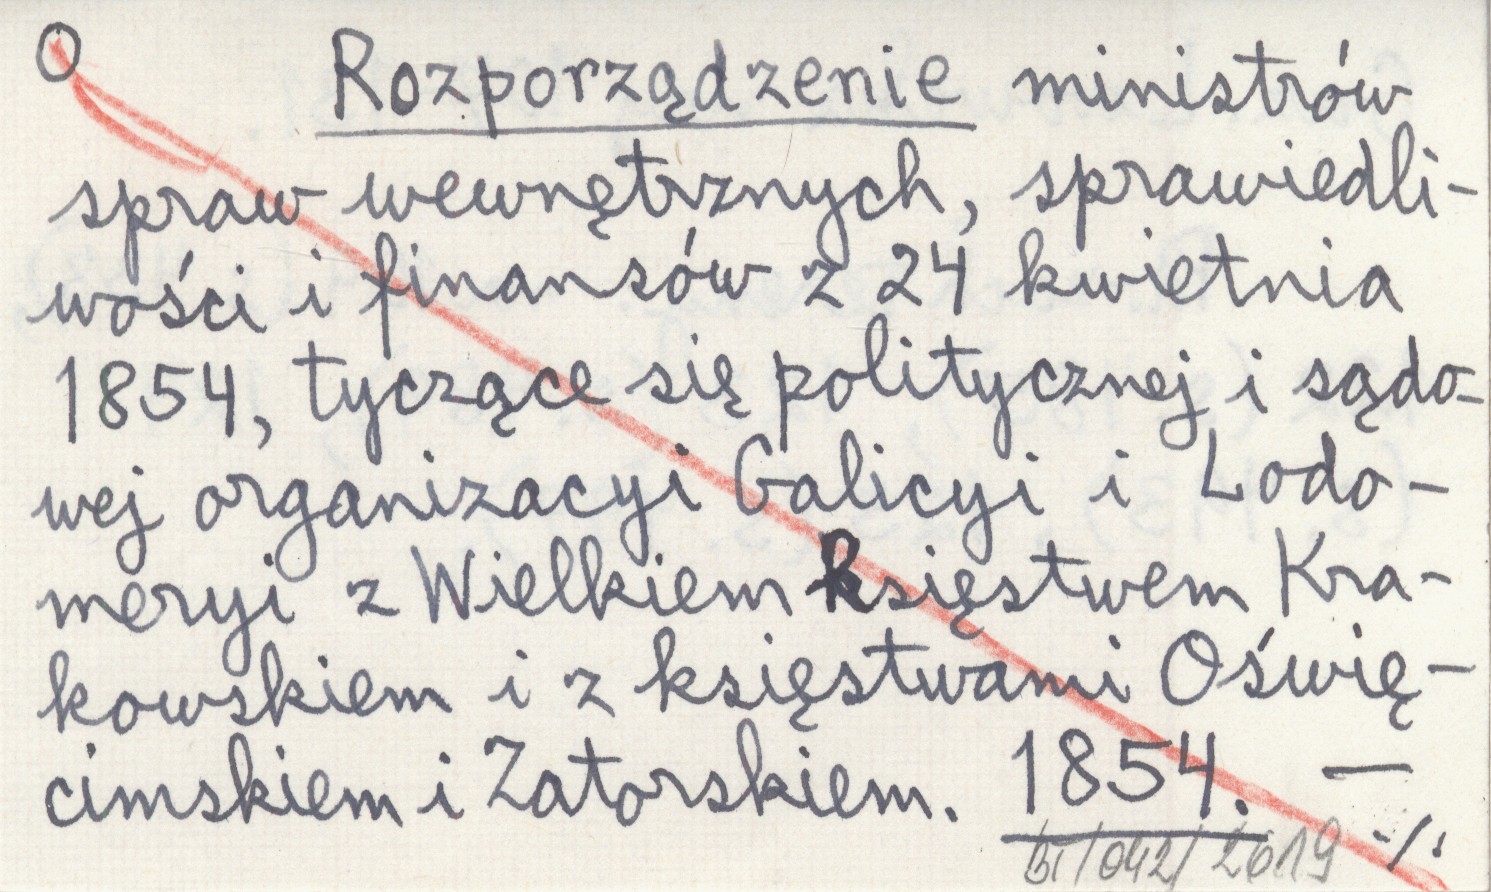 O Rozporządzenie ministrów
spraw wewnętrznych, sprawiedli-
wości i finansów z 24 kwietnia
1854, tyczące się politycznej i sądo-
wej organizacyi Galicyi i Lodo-
meryi z Wielkiem księstwem Kra-
kowskiem i z księstwami Oświę-
cimskiem i Zatorskiem. 1854. —
/042/2019 -/.